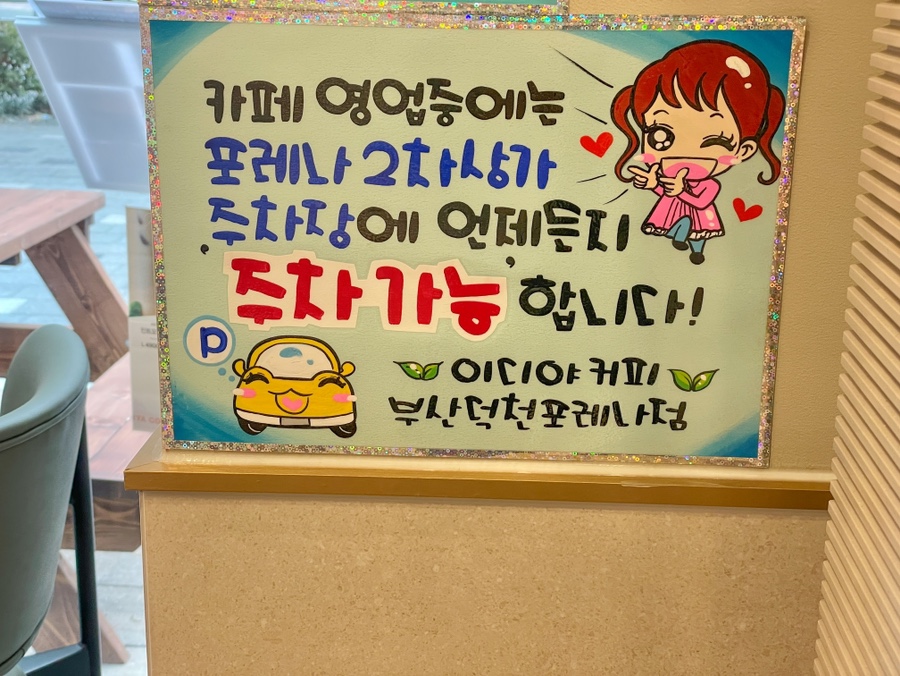 카페 영업중에는
포레나 2차상가
주차장에 언제든지
주차가능 합니다!
P
이디야 커피
부산덕천포레나점